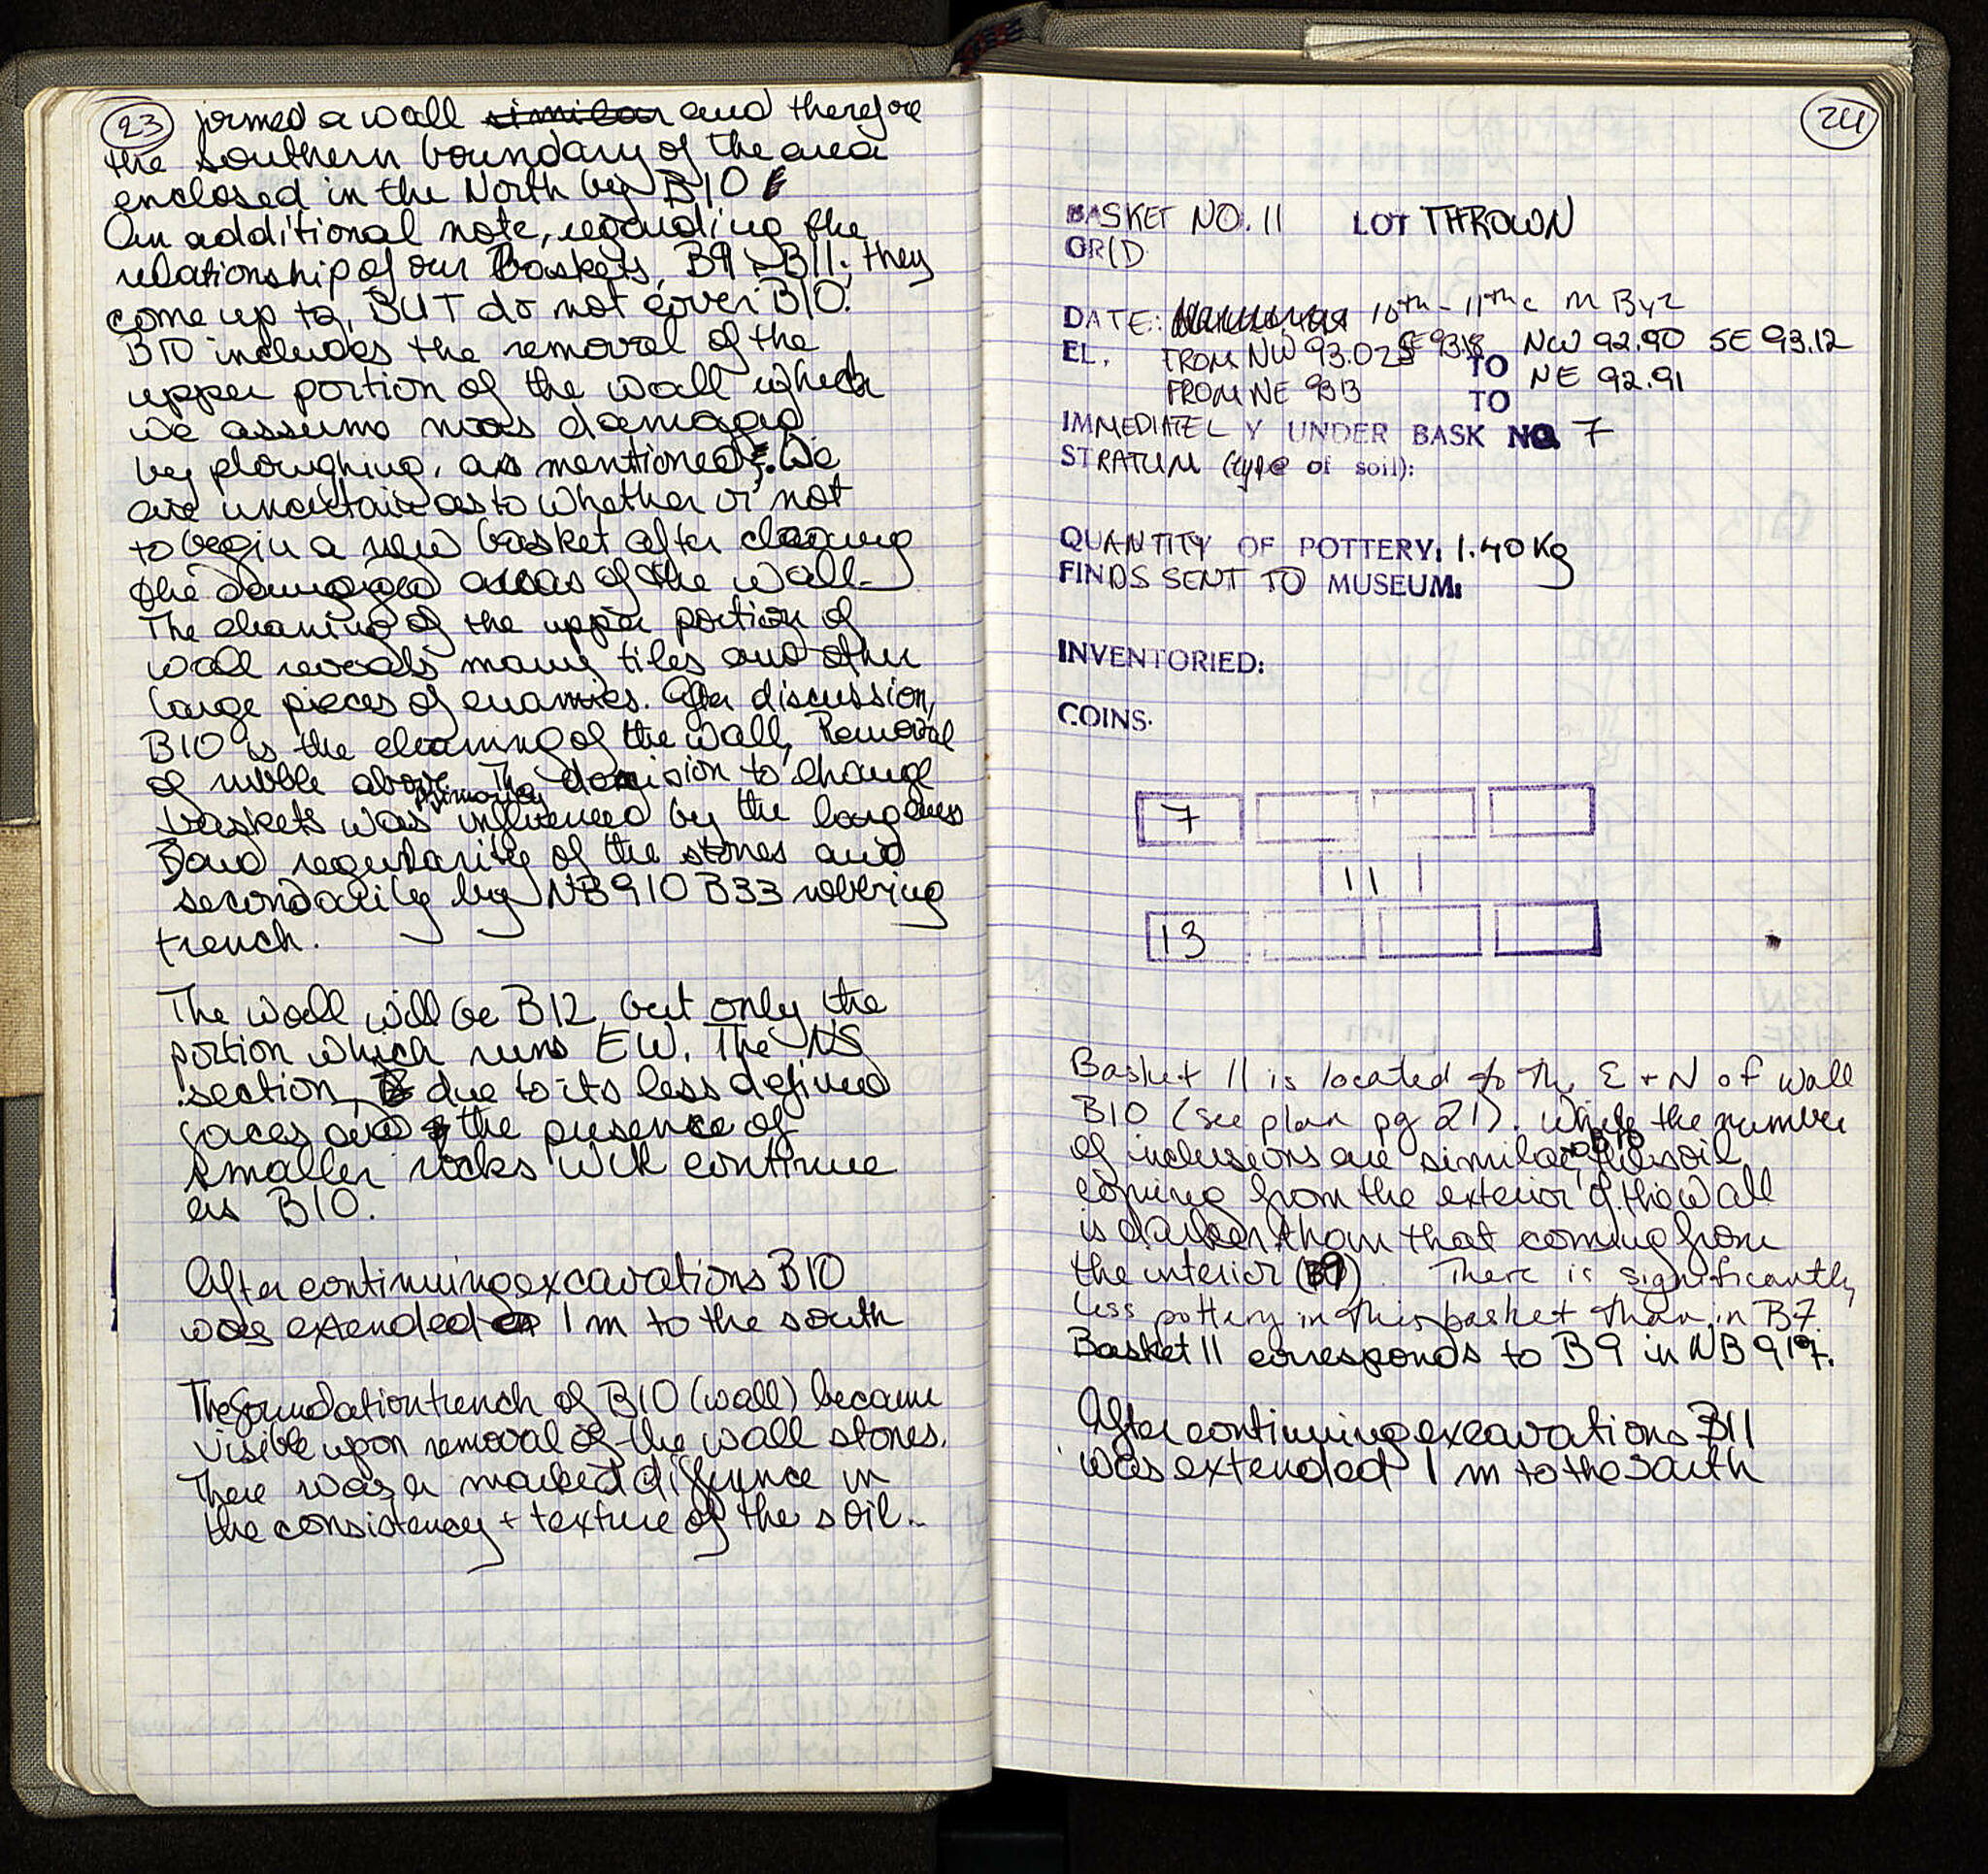 23 formed a wall similar and therefore
the southern boundary of the area
enclosed in the North by B10
An additional note, regarding the
relationship of our Baskets, B9 > B11; they
come up to, BUT do not cover B10.
B10 includes the removal of the
upper portion of the wall which
we assume was damaged
by ploughing, as mentioned. We
are uncertain as to whether or not
to begin a new basket after cleaning
the damaged areas of the wall-
The cleaning of the upper portion of
wall reveals many tiles and other
large pieces of. After discussion,
B10 is the cleaning of the wall, Removal
of rubble above. The decision to change
baskets was primarily influenced by the largeness
and regularity of the stones and
secondarily by NB910 B33 robbing
trench.
The wall will be B12 but only the
portion which runs EW. The NS
section, due to its less defined
faces and the presence of
smaller rocks will continue
as B10.
After continuing excavations B10
was extended 1 m to the south
The foundation trench of B10 (wall) became
visible upon removal of the wall stones.
There was a marked difference in
the consistency + texture of the soil..
24
BASKET NO. 11 LOT THROWN
GRID
DATE: 10th - 11th c M Byz
EL. FROM NW 93.025 SE 93.18 TO NW 92.90 SE 93.12
FROM NE 9313 TO NE 92.91
IMMEDIATELY UNDER BASK NO. 7
STRATUM (type of soil):
QUANTITY OF POTTERY: 1.40 Kg
FINDS SENT TO MUSEUM:
INVENTORIED:
COINS.
7
11
13
Basket 11 is located to the E + N of wall
B10 (see plan pg 21). While the number
of inclusions are similar to B10, the soil
coming from the exterior of the wall
is darker than that coming from
the interior (B9). There is significantly
less pottery in this basket than in B7.
Basket 11 corresponds to B9 in NB 919.
After continuing excavations B11
was extended 1 m to the South